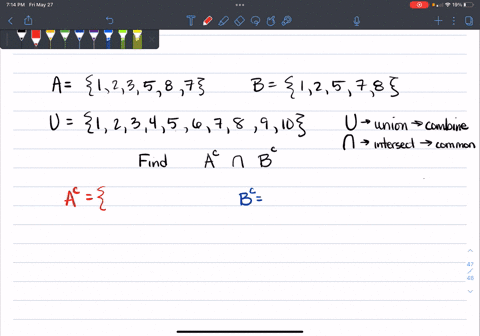 7:14 PM Fri May 27
19%
A = {1, 2, 3, 5, 8, 7} B = {1, 2, 5, 7, 8}
U = {1, 2, 3, 4, 5, 6, 7, 8, 9, 10}
U → union → combine
∩ → intersect → common
Find Aᶜ ∩ Bᶜ
Aᶜ = { Bᶜ =
47
/
48